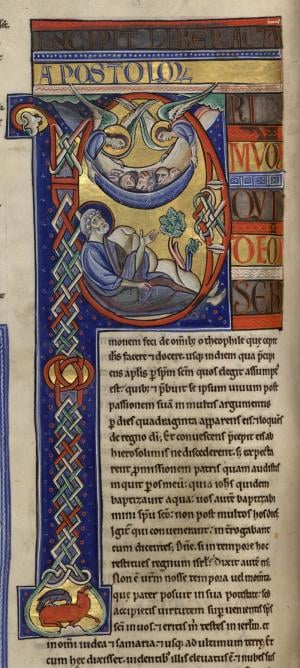 INCIPIT LIBER ACTV
APOSTOLOꝜ
P RI
MVO
QVI
DEO
SER
monem feci de omĩb; o theophile que cepit
iħs facere & docere. usq; in diem qua p̃cipi
ens aplis p sp̃m sc̃m quos elegit assumpt
est. quib; & p̃buit se ipsum uiuum post
passionem suã in multis argumentis
p dies quadraginta apparens eis & loquẽs
de regno di. Et conuescens p̃cepit eis ab
hierosolimis ne discederent. s; expecta
rent p̃missionem patris quam audistis
inquit p os meũ. quia ioħs quidem
baptizauit aqua. uos autẽ baptizabi
mini sp̃u sc̃o. non post multos hos dies.
Igit̃ qui conuenerant. int̃rogabant
eum dicentes; Dñe. si in tempore hoc
restitues regnum isrl̃. Dixit autẽ eis.
Non ẽ ur̃m nosse tempora uel momta.
que pater posuit in sua potestate. sed
accipietis uirtutem supuenientis sp̃s
sc̃i in uos. & eritis m̃ testes in ierlm̃. et
in om̃i iudea & samaria. & usq; ad ultimum terre. Et
cum hec dixisset. uidentib; illis eleuatus ẽ. & nubes sus